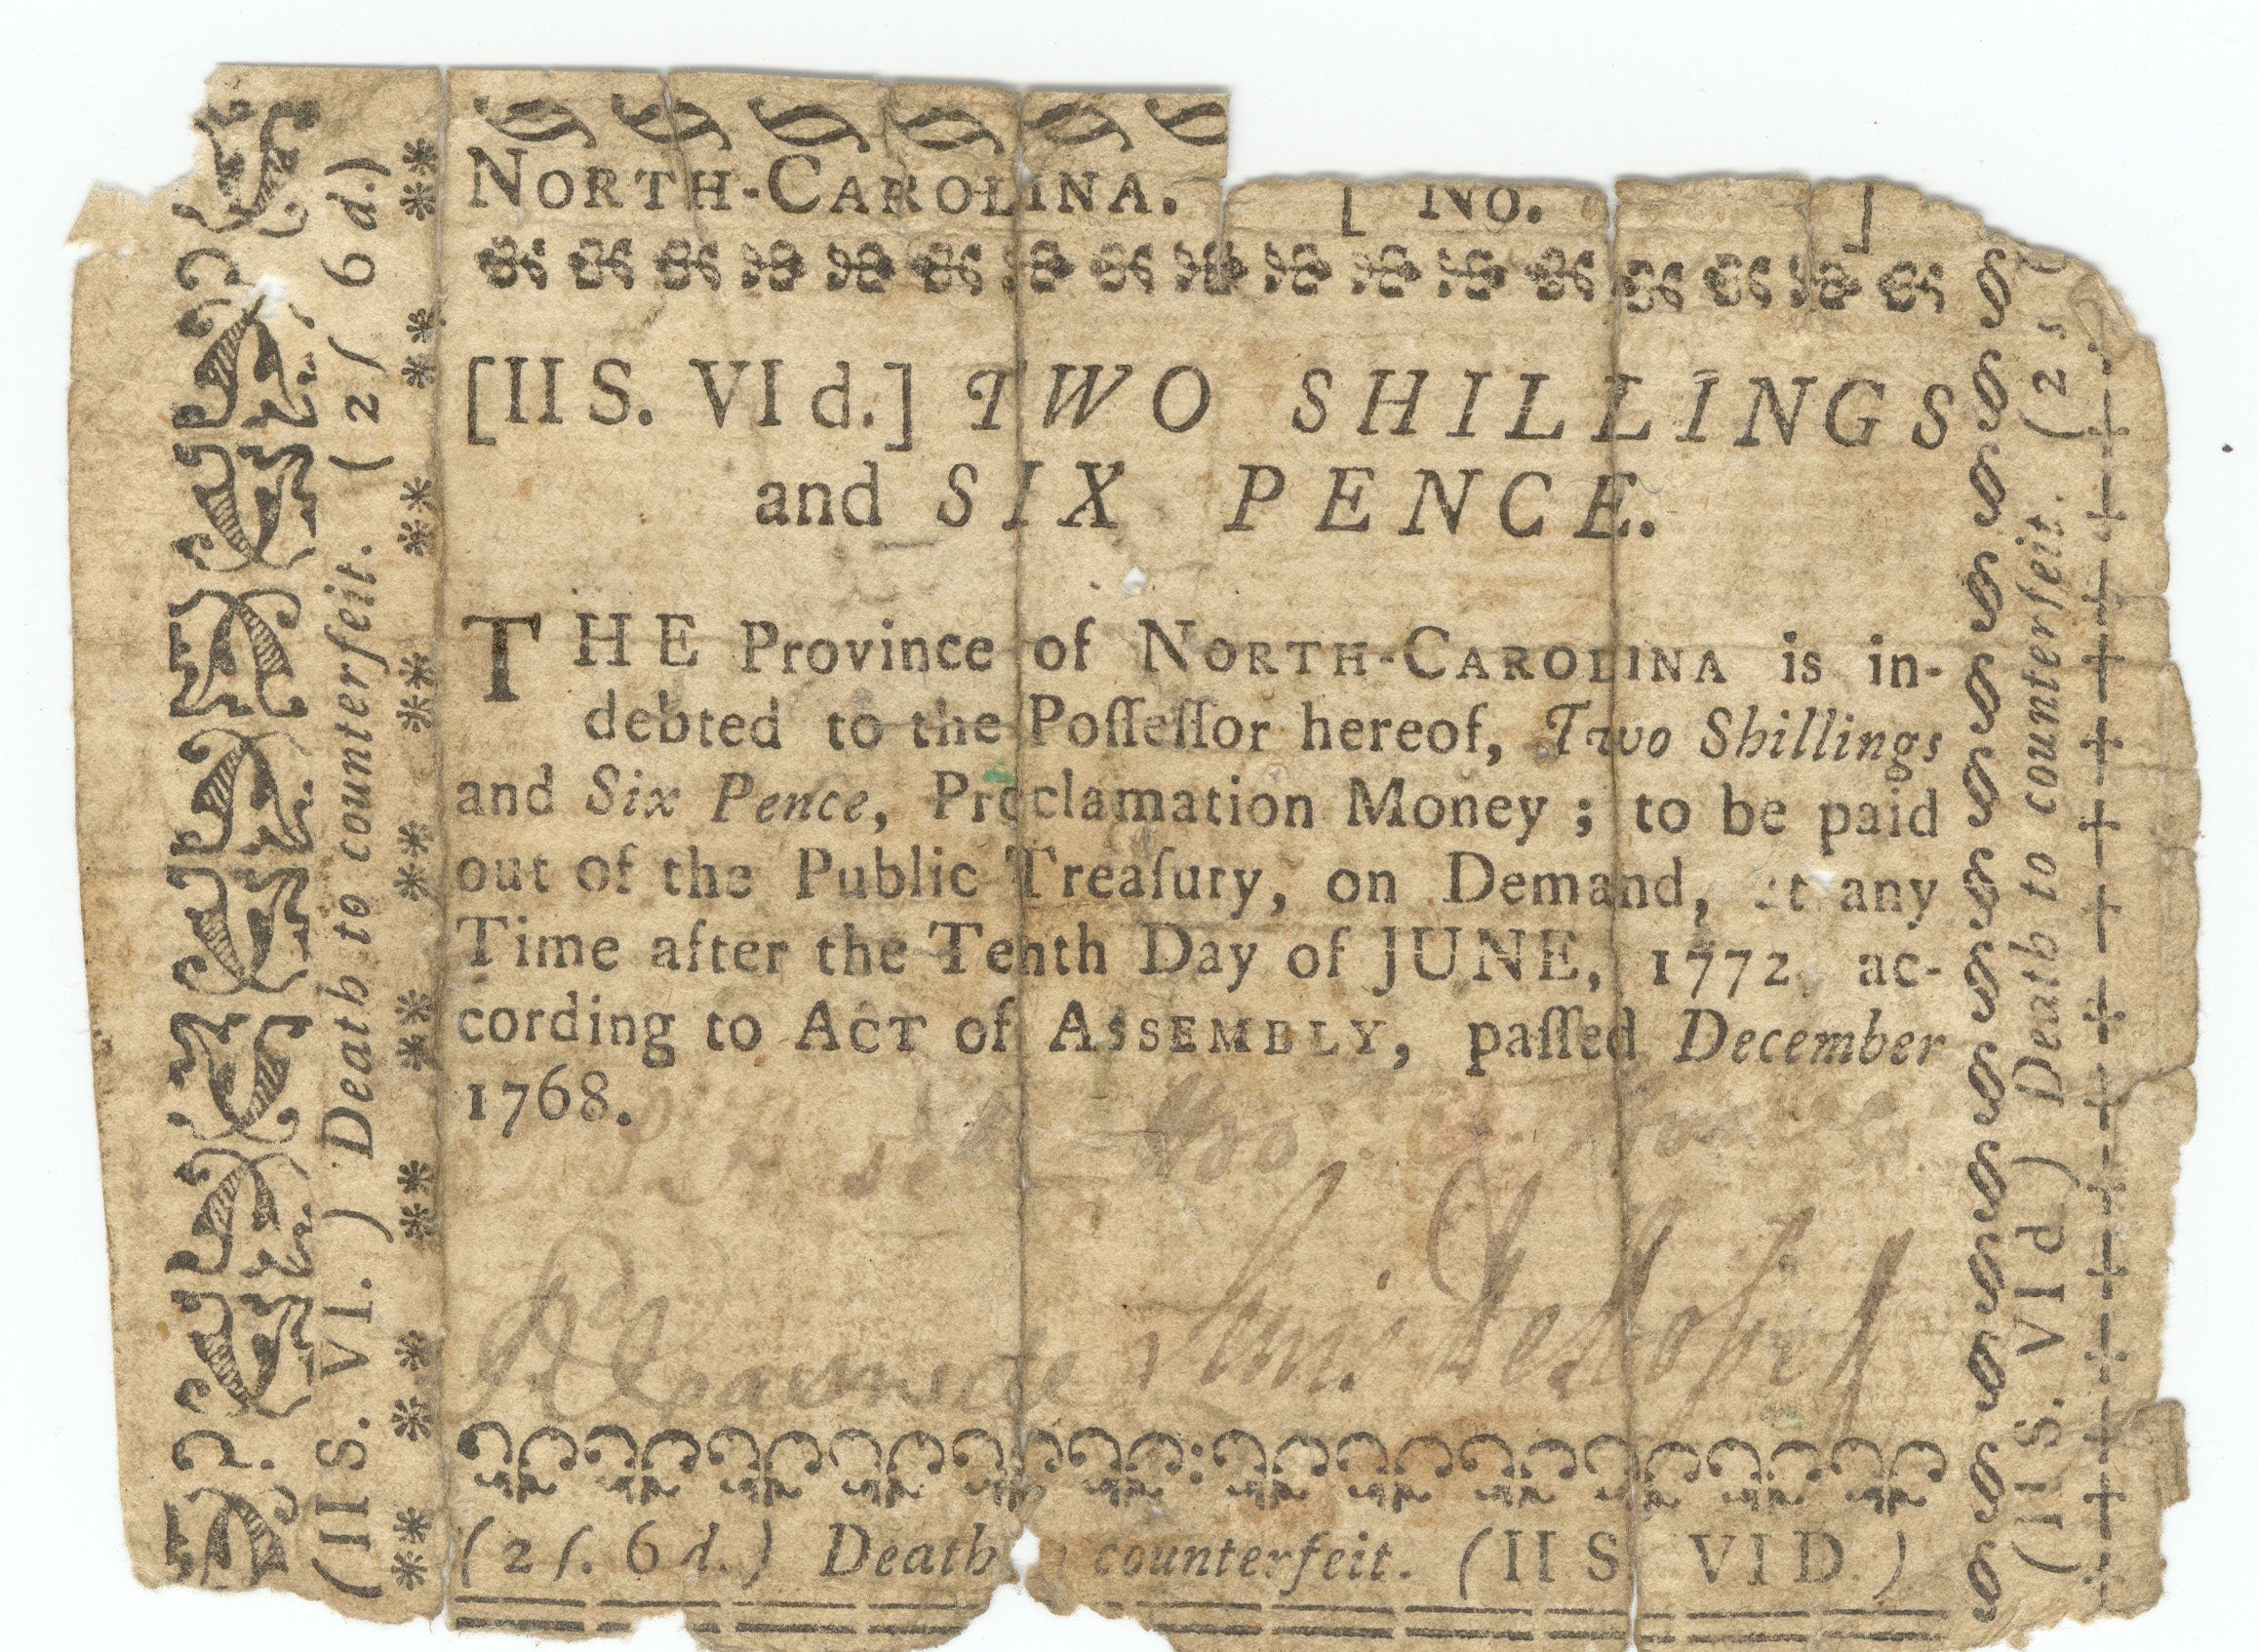 NORTH-CAROLINA. [ No. ]
[II S. VI d.] TWO SHILLINGS
and SIX PENCE.
THE Province of NORTH-CAROLINA is in-
debted to the Poſſeſſor hereof, Two Shillings
and Six Pence, Proclamation Money ; to be paid
out of the Public Treaſury, on Demand, at any
Time after the Tenth Day of JUNE, 1772, ac-
cording to ACT of ASSEMBLY, paſſed December
1768.
(2ſ. 6d.) Death counterfeit. (II S VI D.)
(II S. VI.) Death to counterfeit. (2ſ 6d.)
(II S. VI d.) Death to counterfeit. (2 s